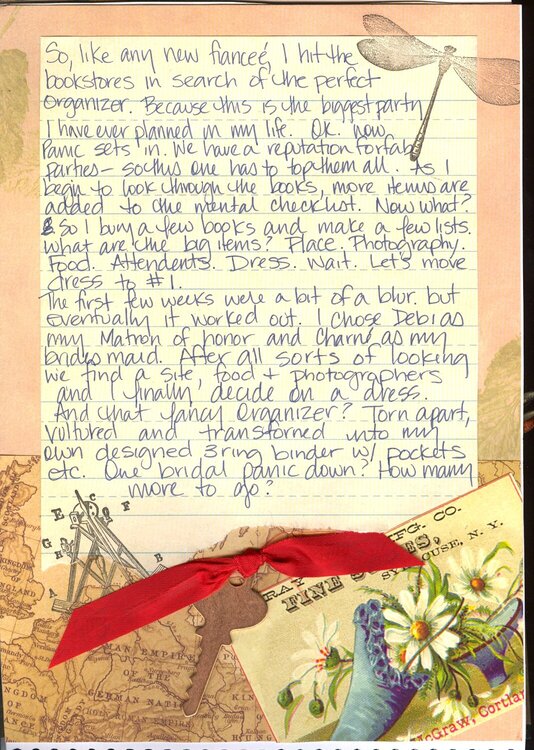 So, like any new fianceé, I hit the
bookstores in search of the perfect
Organizer. Because this is the biggest party
I have ever planned in my life. OK. now
Panic sets in. We have a reputation for fab
parties - so this one has to top them all. As I
begin to look through the books, more items are
added to the mental checklist. Now what?
So I buy a few books and make a few lists.
what are the big items? Place. Photography.
Food. Attendents. Dress. Wait. Let's move
dress to #1.
The first few weeks were a bit of a blur. but
eventually it worked out. I chose Debi as
my Matron of honor and Charné as my
brides maid. After all sorts of looking
we find a site, food + photographers
and I finally decide on a dress.
And that fancy Organizer? Torn apart,
vultured and transformed into my
own designed 3 ring binder w/ pockets
etc. One bridal panic down? How many
more to go?
E C F
G
B
A
MFG. CO.
RAY
FINE
SYRACUSE, N. Y.
MAN EMPIRE
OF THE
GERMAN NATI
HOLY ROMAN EMPIRE
KIN
McGraw, Cortlan